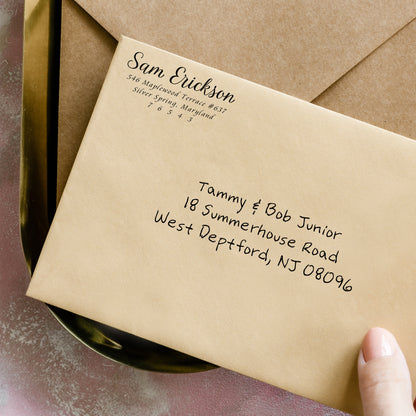 Sam Erickson
546 Maplewood Terrace #637
Silver Spring, Maryland
7 6 5 4 3
Tammy & Bob Junior
18 Summerhouse Road
West Deptford, NJ 08096